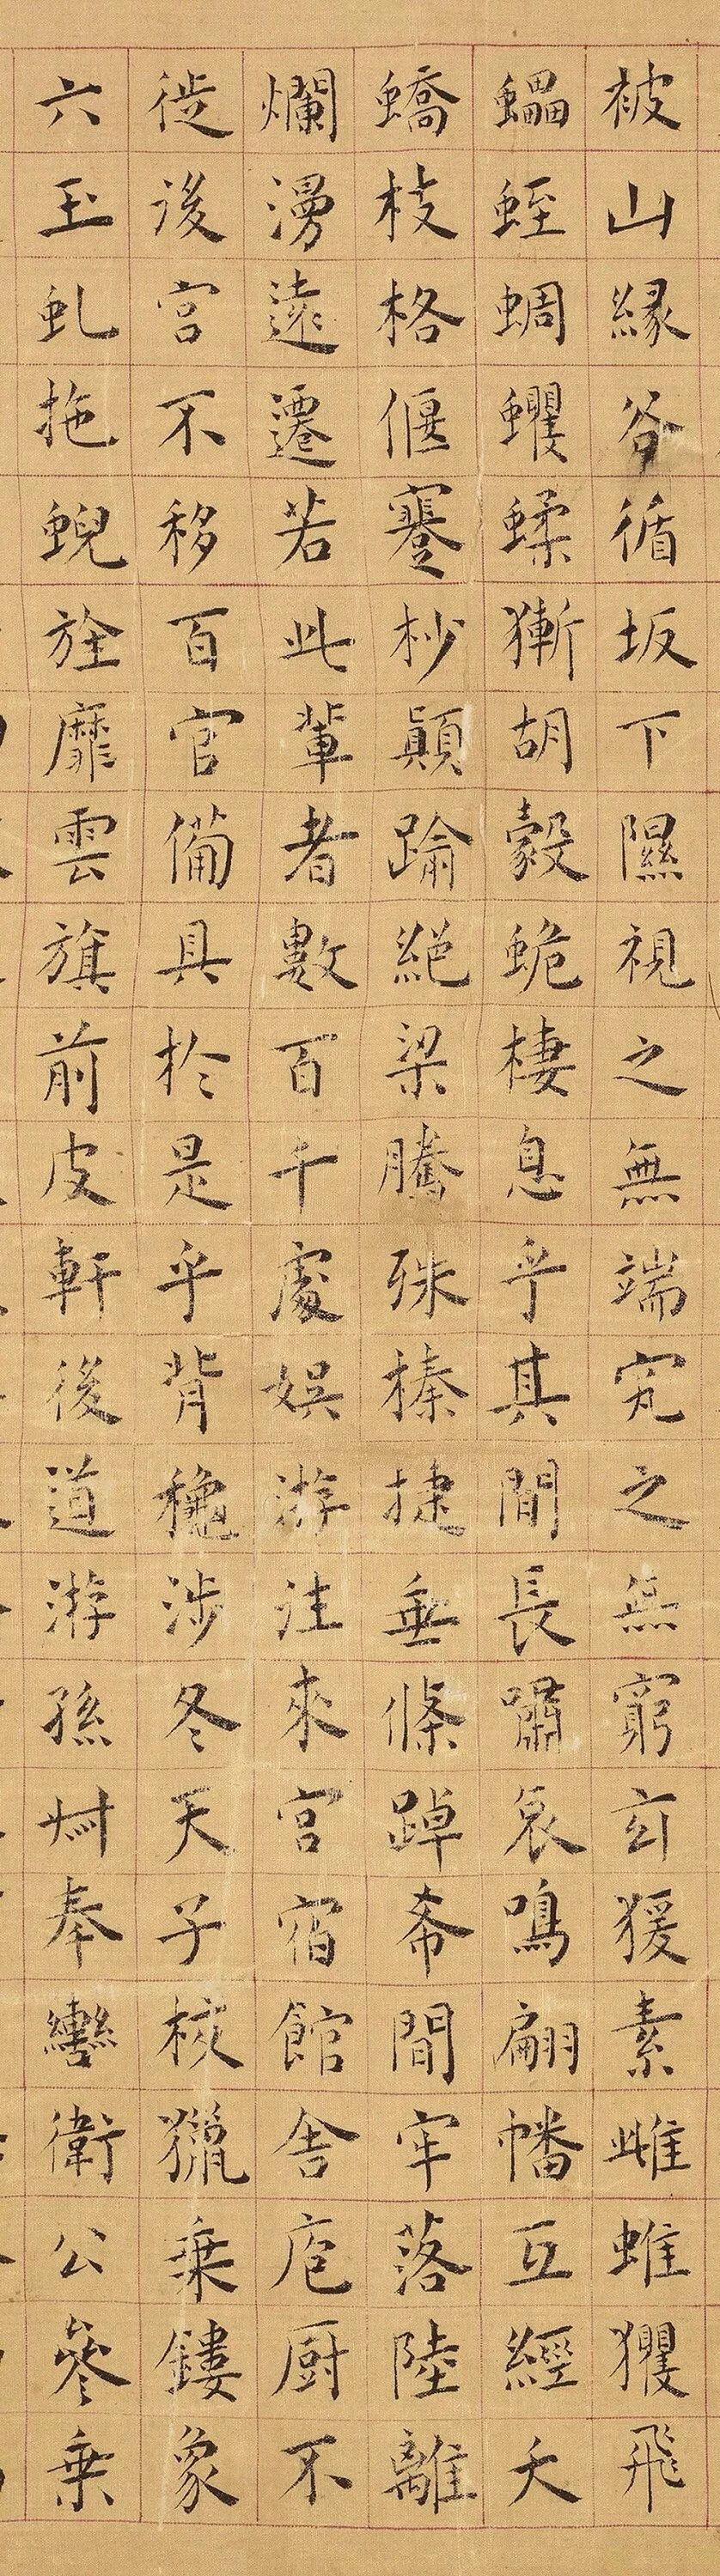 被山緣谷循坂下隰視之無端究之無窮玄猨素雌蜼玃飛
蠝蛭蜩蠼蝚獑胡豰蛫棲息乎其間長嘯哀鳴翩幡互經夭
蟜枝格偃蹇杪顛踰絕梁騰殊榛捷垂條踔希間牢落陸離
爛漫遠遷若此輩者數百千處娛游往來宮宿館舍庖厨不
徙後宮不移百官備具於是乎背秋涉冬天子校獵乘鏤象
六玉虬拖蜺旌靡雲旗前皮軒後道游孫叔奉轡衛公參乘